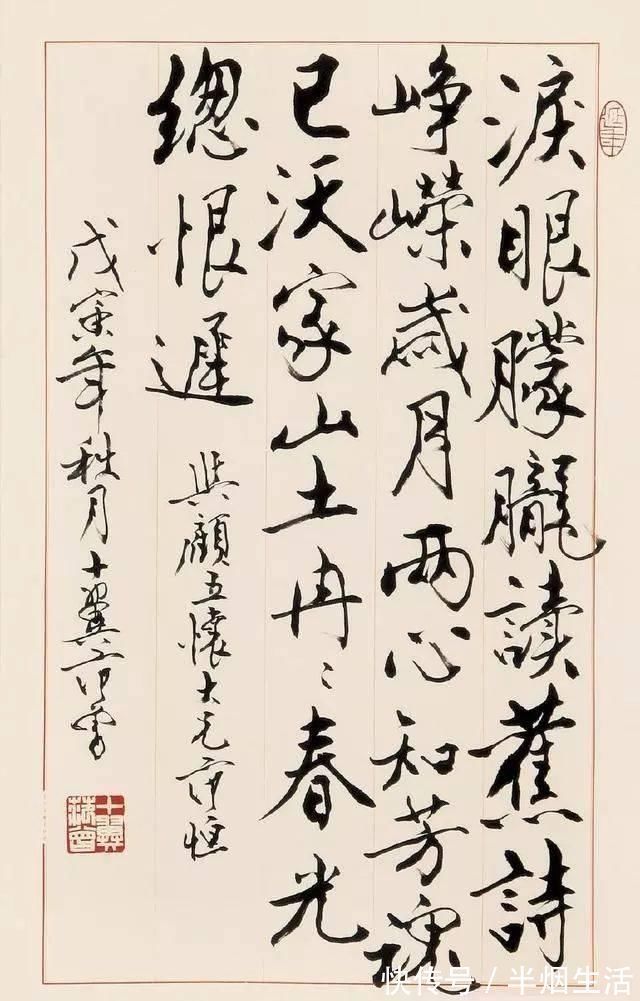 淚眼朦朧讀蕉詩
崢嶸歲月兩心知芳魂
已沃家山土冉〻春光
總恨遲
與顧五懷大兄范恒
戊寅年秋月十翼范曾
十翼范曾
快传号/半烟生活